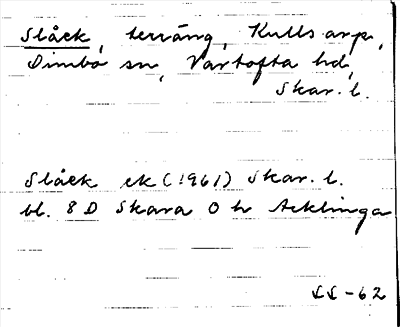 Slåek, terräng, Kullsarp,
Dimbo sn, Vartofta hd,
Skar. l.
Slåek ek (1961) Skar. l.
bl. 8 D Skara O h Acklinga
LL-62